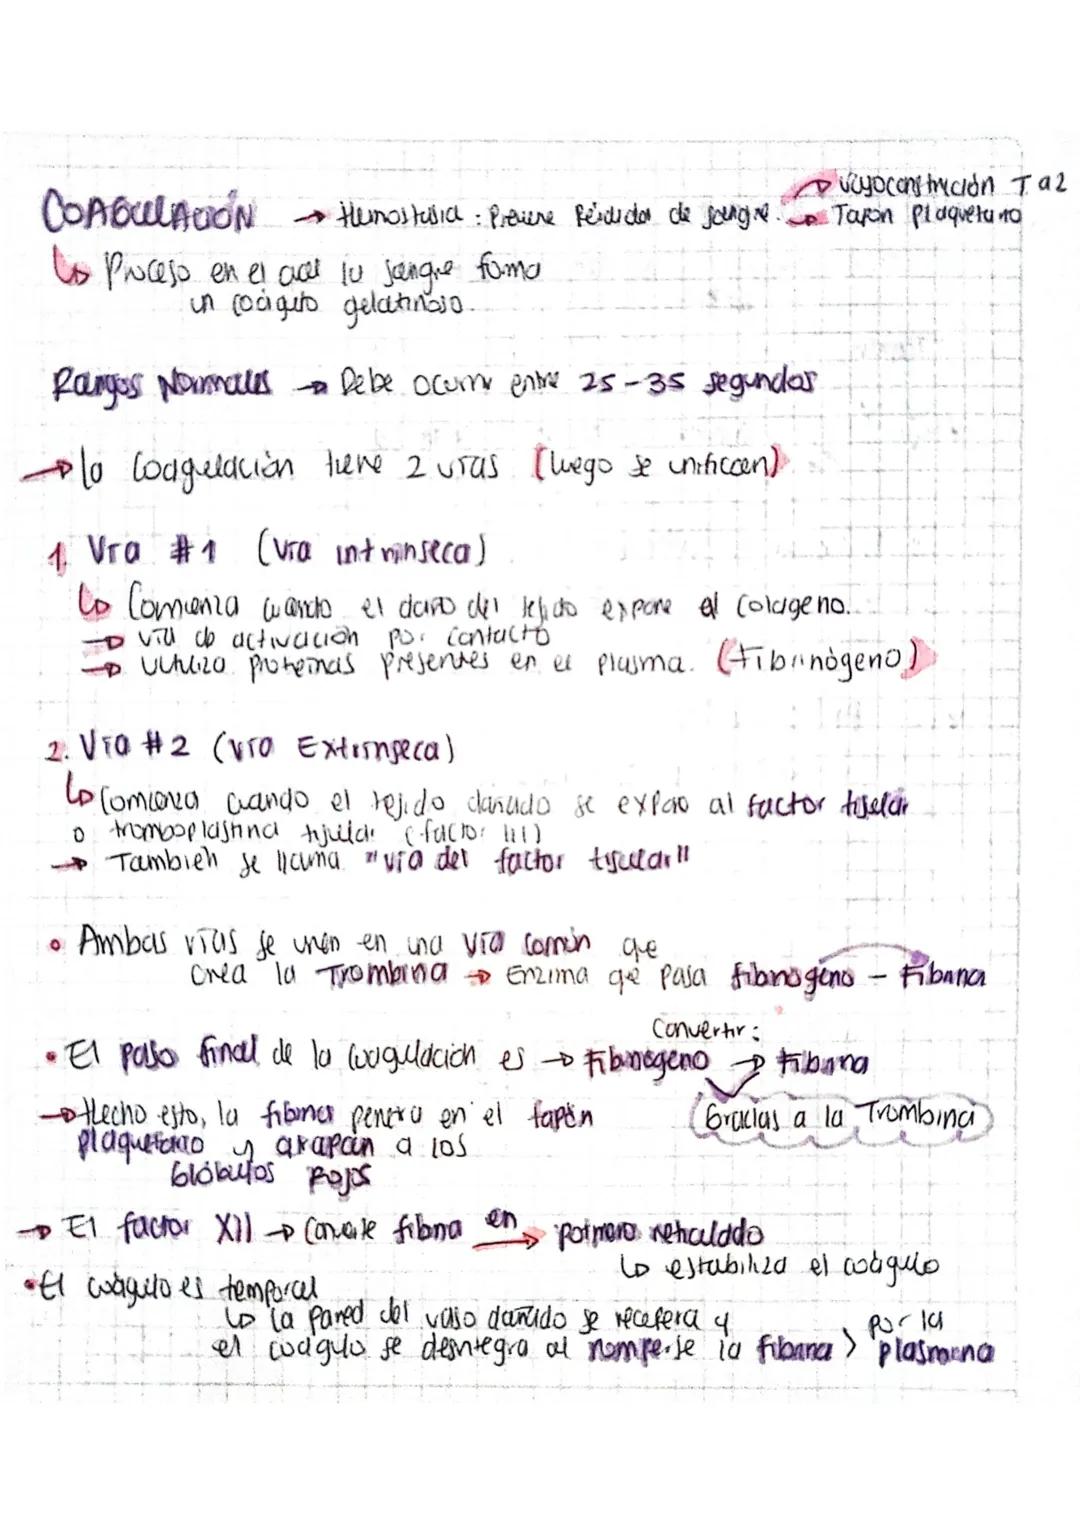 COAGULACIÓN → Hemostasia : Previene Pérdida de sangre. → Vasoconstricción Txa2
→ Tapon plaquetario
↳ Proceso en el cual la sangre forma
un coágulo gelatinoso.
Rangos Normales → Debe ocurrir entre 25-35 segundos
→ la coagulación tiene 2 vías (luego se unifican)
1. Vía #1 (vía intrínseca)
↳ Comienza cuando el daño del tejido expone el colageno.
→ vía de activación por contacto
→ Utiliza proteínas presentes en el plasma. (Fibrinógeno)
2. Vía #2 (vía Extrínseca)
↳ Comienza cuando el tejido dañado se expone al factor tiselar
o tromboplastina tisular (factor III)
→ También se llama "vía del factor tisular"
• Ambas vías se unen en una vía común que
crea la Trombina → Enzima que pasa fibrinogeno - Fibrina
Convertir:
• El paso final de la coagulación es → Fibrinogeno → Fibrina
Gracias a la Trombina
→ Hecho esto, la fibrina penetra en el tapón
plaquetario y atrapan a los
Glóbulos Rojos
→ El factor XII → Convierte fibrina en → polímero reticulado
↳ estabiliza el coágulo
• El coágulo es temporal
↳ la pared del vaso dañado se recupera y
el coágulo se desintegra al romperse la fibrina > por la
plasmina